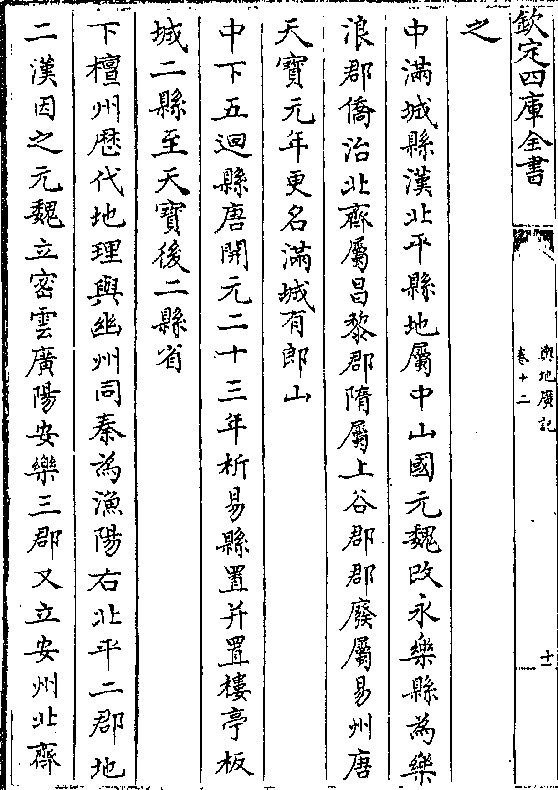 欽定四庫全書
輿地廣記
卷十二
十一
之
中滿城縣漢北平縣地屬中山國元魏改永樂縣為樂
浪郡僑治北齊屬昌黎郡隋屬上谷郡郡廢屬易州唐
天寶元年更名滿城有郎山
中下五迴縣唐開元二十三年析易縣置并置樓亭板
城二縣至天寶後二縣省
下檀州歷代地理與幽州同秦為漁陽右北平二郡地
二漢因之元魏立密雲廣陽安樂三郡又立安州北齊